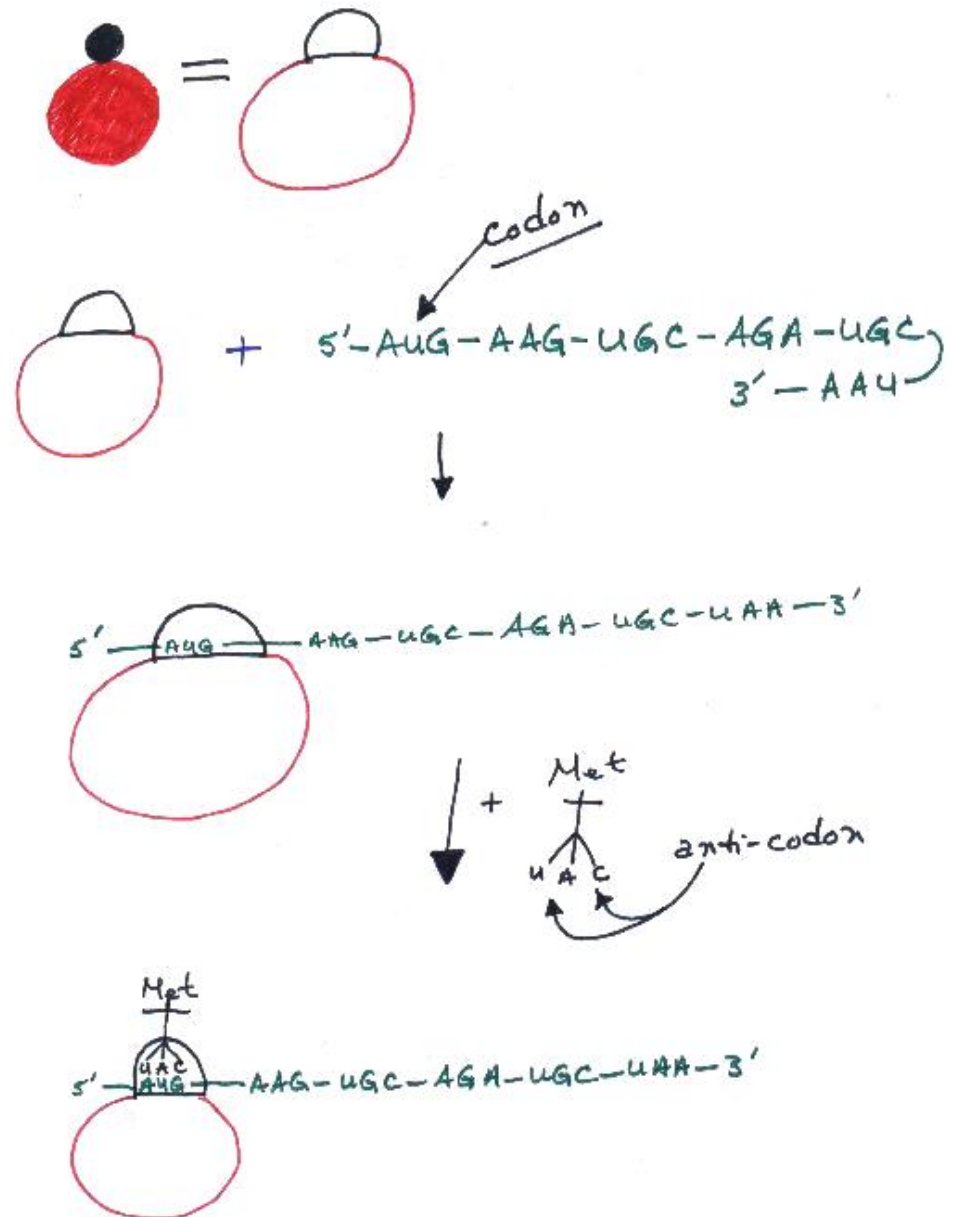 =
codon
+ 5'-AUG-AAG-UGC-AGA-UGC
3'-AAU
5'-AUG-AAG-UGC-AGA-UGC-UAA-3'
+ Met
U A C
anti-codon
Met
UAC
5'-AUG-AAG-UGC-AGA-UGC-UAA-3'